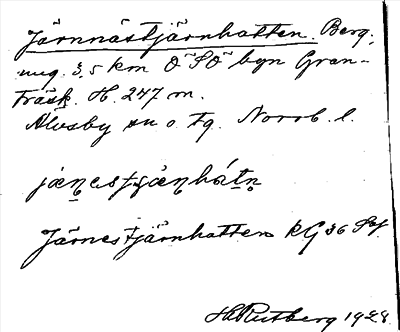 Järnnästjärnhatten. Berg,
ung. 3,5 km Ö SÖ byn Gran-
träsk. H. 247 m.
Älvsby sn o. tg. Norrb. l.
Järnestjärnhatten kG 36 Sof
H Rutberg 1928